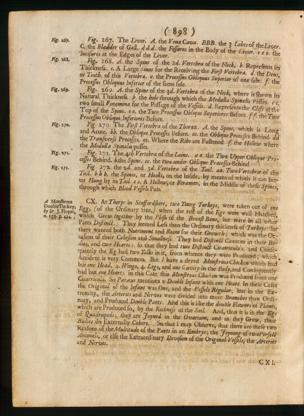 ( 898 )
Fig. 167. The Liver. A. the Vena Cava. BBB. the 3 Lobes of the Liver.
C. the Bladder of Gall. d.d.d. the Fissures in the Body of the Liver.
Incisures at the Edges of the Liver.
Fig. 168. A. the Spine of the 2d. Vertebra of the Neck, b Represents its
Thickness. c. A Large Sinus for the Receiving the First Vertebra. d the Dens,
or Tooth, of this Vertebra. e. the Processus Obliquus Superior of one side: f. the
Processus Obliquus Inferior of the same side.
Fig. 169. A. the Spine of the 3d. Vertebra of the Neck, where is shown its
Natural Thickness. b the hole through which the Medulla Spinalis Passes.
two small Foramina for the Passage of the Vessels. d. Represents the Cleft at the
Top of the Spine. e.e. the Two Processus Obliqui Superiores Before. f.f. the Two
Processus Obliqui Inferiores Behind.
Fig. 170. The First Vertebra of the Thorax. A. the Spine, which is Long
and Acute. bb. the Oblique Processes before. cc. the Oblique Processes Behind. dd
the Transverse Processes. ee. Where the Ribs are Fastened. f. the Hollow where
the Medulla Spinalis passes.
Fig. 171. The 4th Vertebra of the Loins. a.a. the Two Upper Oblique Processes
Behind. b the Spine. cc. the two under Oblique Processes Behind
Fig. 172. the 1st. and 2d. Vertebra of the Tail. aa. Two Vertebra's of the
Tail. b b b. the Spines, or Hooks, on the inside; by means of which it can fasten
or Hang by its Tail. A Hollow, or Foramen, in the Middle of these Spines,
through which Blood Vessels Pass.
a Monstrous
Double Turkey,
by Sr. J. Floyer,
CX. At Thorpe in Staffordshire, two Young Turkeys, were taken out of one
Egg, (of the Ordinary size,) when the rest of the Eggs were well Hatched,
which Grew together by the Flesh of the Breast-Bone, but were in all other
Parts Distinct. They seemed Less than the Ordinary thickness of Turkeys; for
there wanted both Nutriment and Room for their Growth; which was the Occasion
of their Cohesion and Smallness. They had Distinct Cavities in their Bodies,
and two Hearts: so that they had two Distinct Cicatricula's, and Consequently
the Egg had two Yolks in it, from whence they were Produced; which
Accident is very Common. But I have a dryed Monstrous Chicken which had
but one Head, 4 Wings, 4 Legs, and one Cavity in the Body, and Consequently
had but one Heart: in this Case this Monstrous Chicken was Produced from one
Cicatricula. So Paræus mentions a Double Infant with one Heart. In these Cases
the Original of the Infant was One, and the Vessels Regular; but in the Extremity,
the Arteries and Nerves were divided into more Branches than Ordinary,
and Produced Double Parts. And this is like the double Flowers of Plants,
which are Produced so, by the Richness of the Soil. And, that it is in the Eggs
of Quadrupeds; they are Joyned in the Ovarium, and as they Grow, their
Bodies do Externally Cohere. So that I may Observe, that there are these two
Reasons of the Multitude of the Parts in an Embryo; the Joyning of two Perfect
Animals, or else the Extraordinary Division of the Original Vessels, the Arteries
and Nerves.
CXI.
Fig. 167.
Fig. 168.
Fig. 169.
Fig. 170.
Fig. 171.